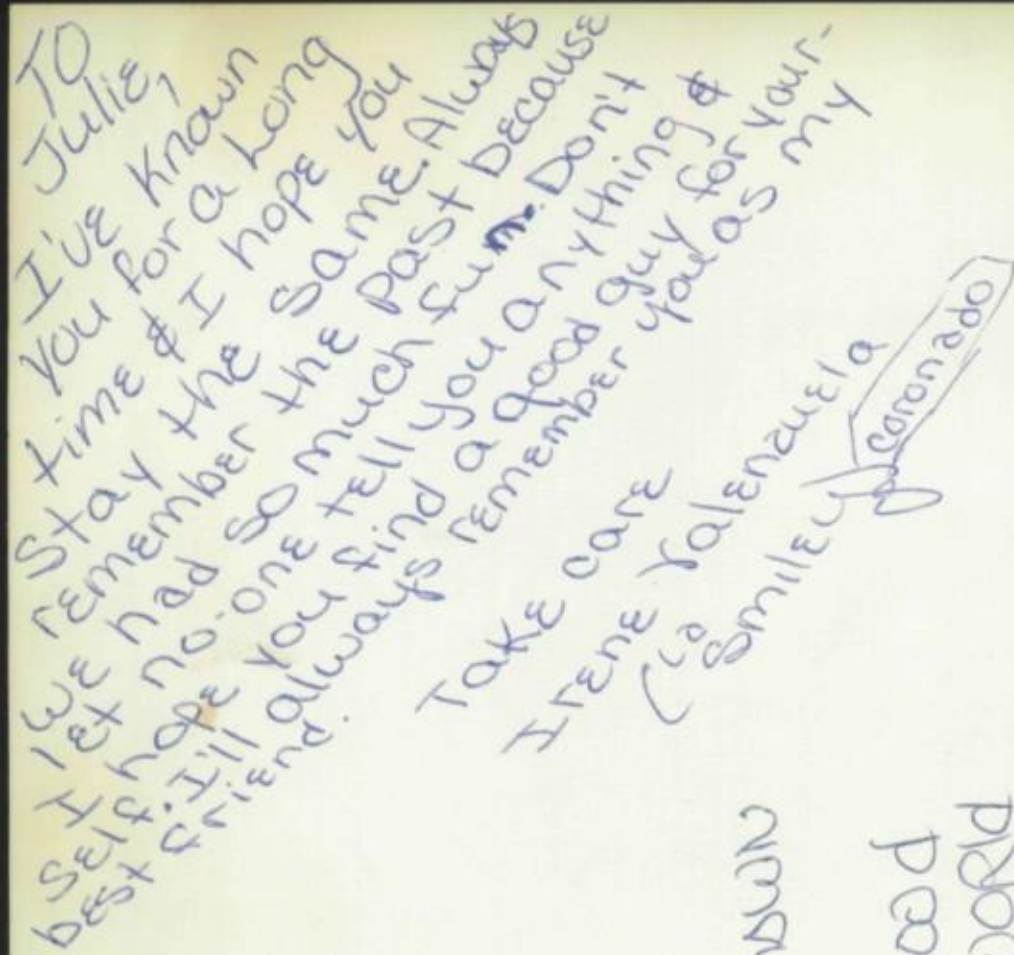 TO
Julie,
I've known
you for a Long
time & I hope you
Stay the same. Always
remember the past because
we had so much fun. Don't
let no-one tell you anything &
I hope you find a good guy for your-
self. I'll always remember you as my
best friend.
Take care
Irene Valenzuela
(la
Smiley)
coronado
OWN
ood
WORld